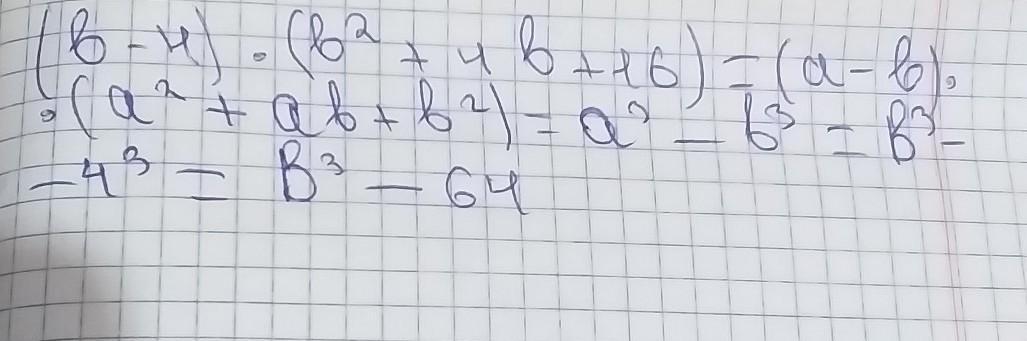 (b - 4) · (b² + 4b + 16) = (a - b) ·
· (a² + ab + b²) = a³ - b³ = b³ -
- 4³ = b³ - 64